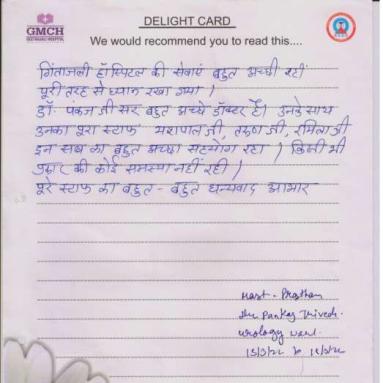 GMCH
DELIGHT CARD
We would recommend you to read this....
गिंताजली हॉस्पिटल की सेवाएं बहुत अच्छी रहीं
पूरी तरह से ध्यान रखा गया।
डॉ. पंकज जी सर बहुत अच्छे डॉक्टर हैं। उनके साथ
उनका पूरा स्टाफ यशपाल जी, तरुणा जी, रमिला जी
इन सब का बहुत अच्छा सहयोग रहा। किसी भी
प्रकार की कोई समस्या नहीं रही।
पूरे स्टाफ का बहुत - बहुत धन्यवाद आभार
Pankaj Trivedi
Urology